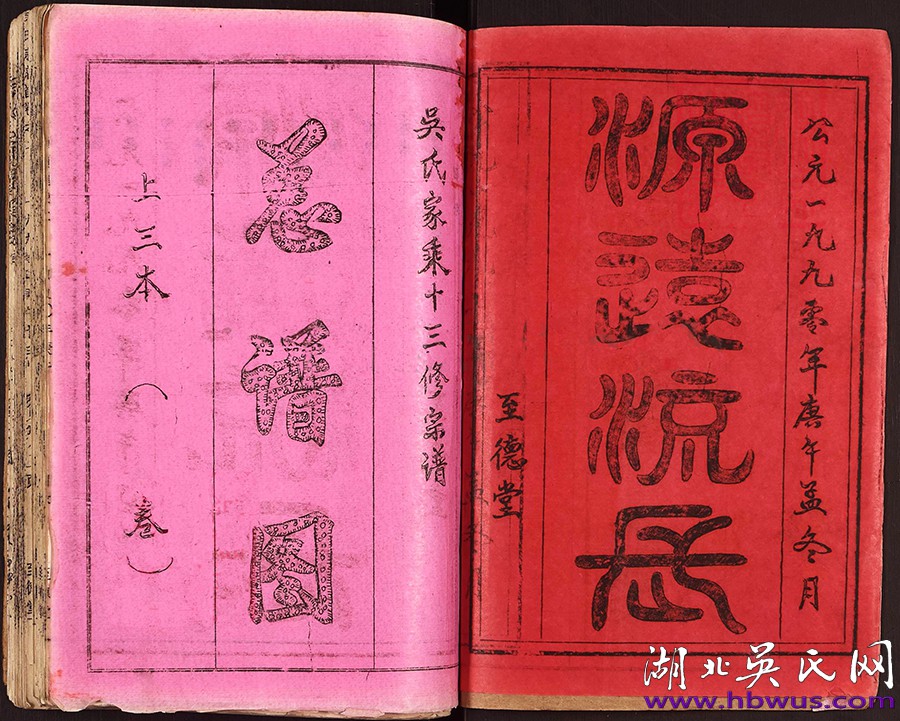 公元一九九零年庚午孟冬月
源遠流長
至德堂
吳氏家乘十三修宗谱
总谱图
上三本(卷)
湖北吳氏网
www.hbwus.com